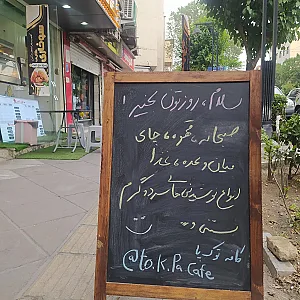 سلام، روزتون بخیر!
صبحانه، قهوه، چای
میان وعده، غذا
انواع نوشیدنی های سرد و گرم
بستنی و ...
کافه توکپا
@to.k.pa cafe